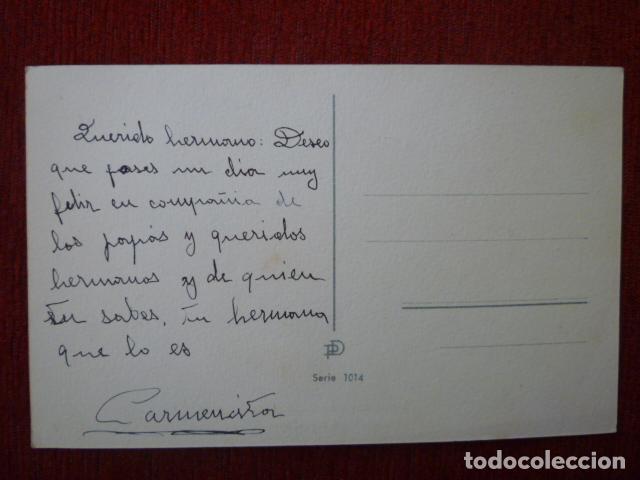 Querido hermano: Deseo
que pases un dia muy
feliz en compañia de
los papás y queridos
hermanos y de quien
tu sabes, tu hermana
que lo es
Serie 1014
todocoleccion.net